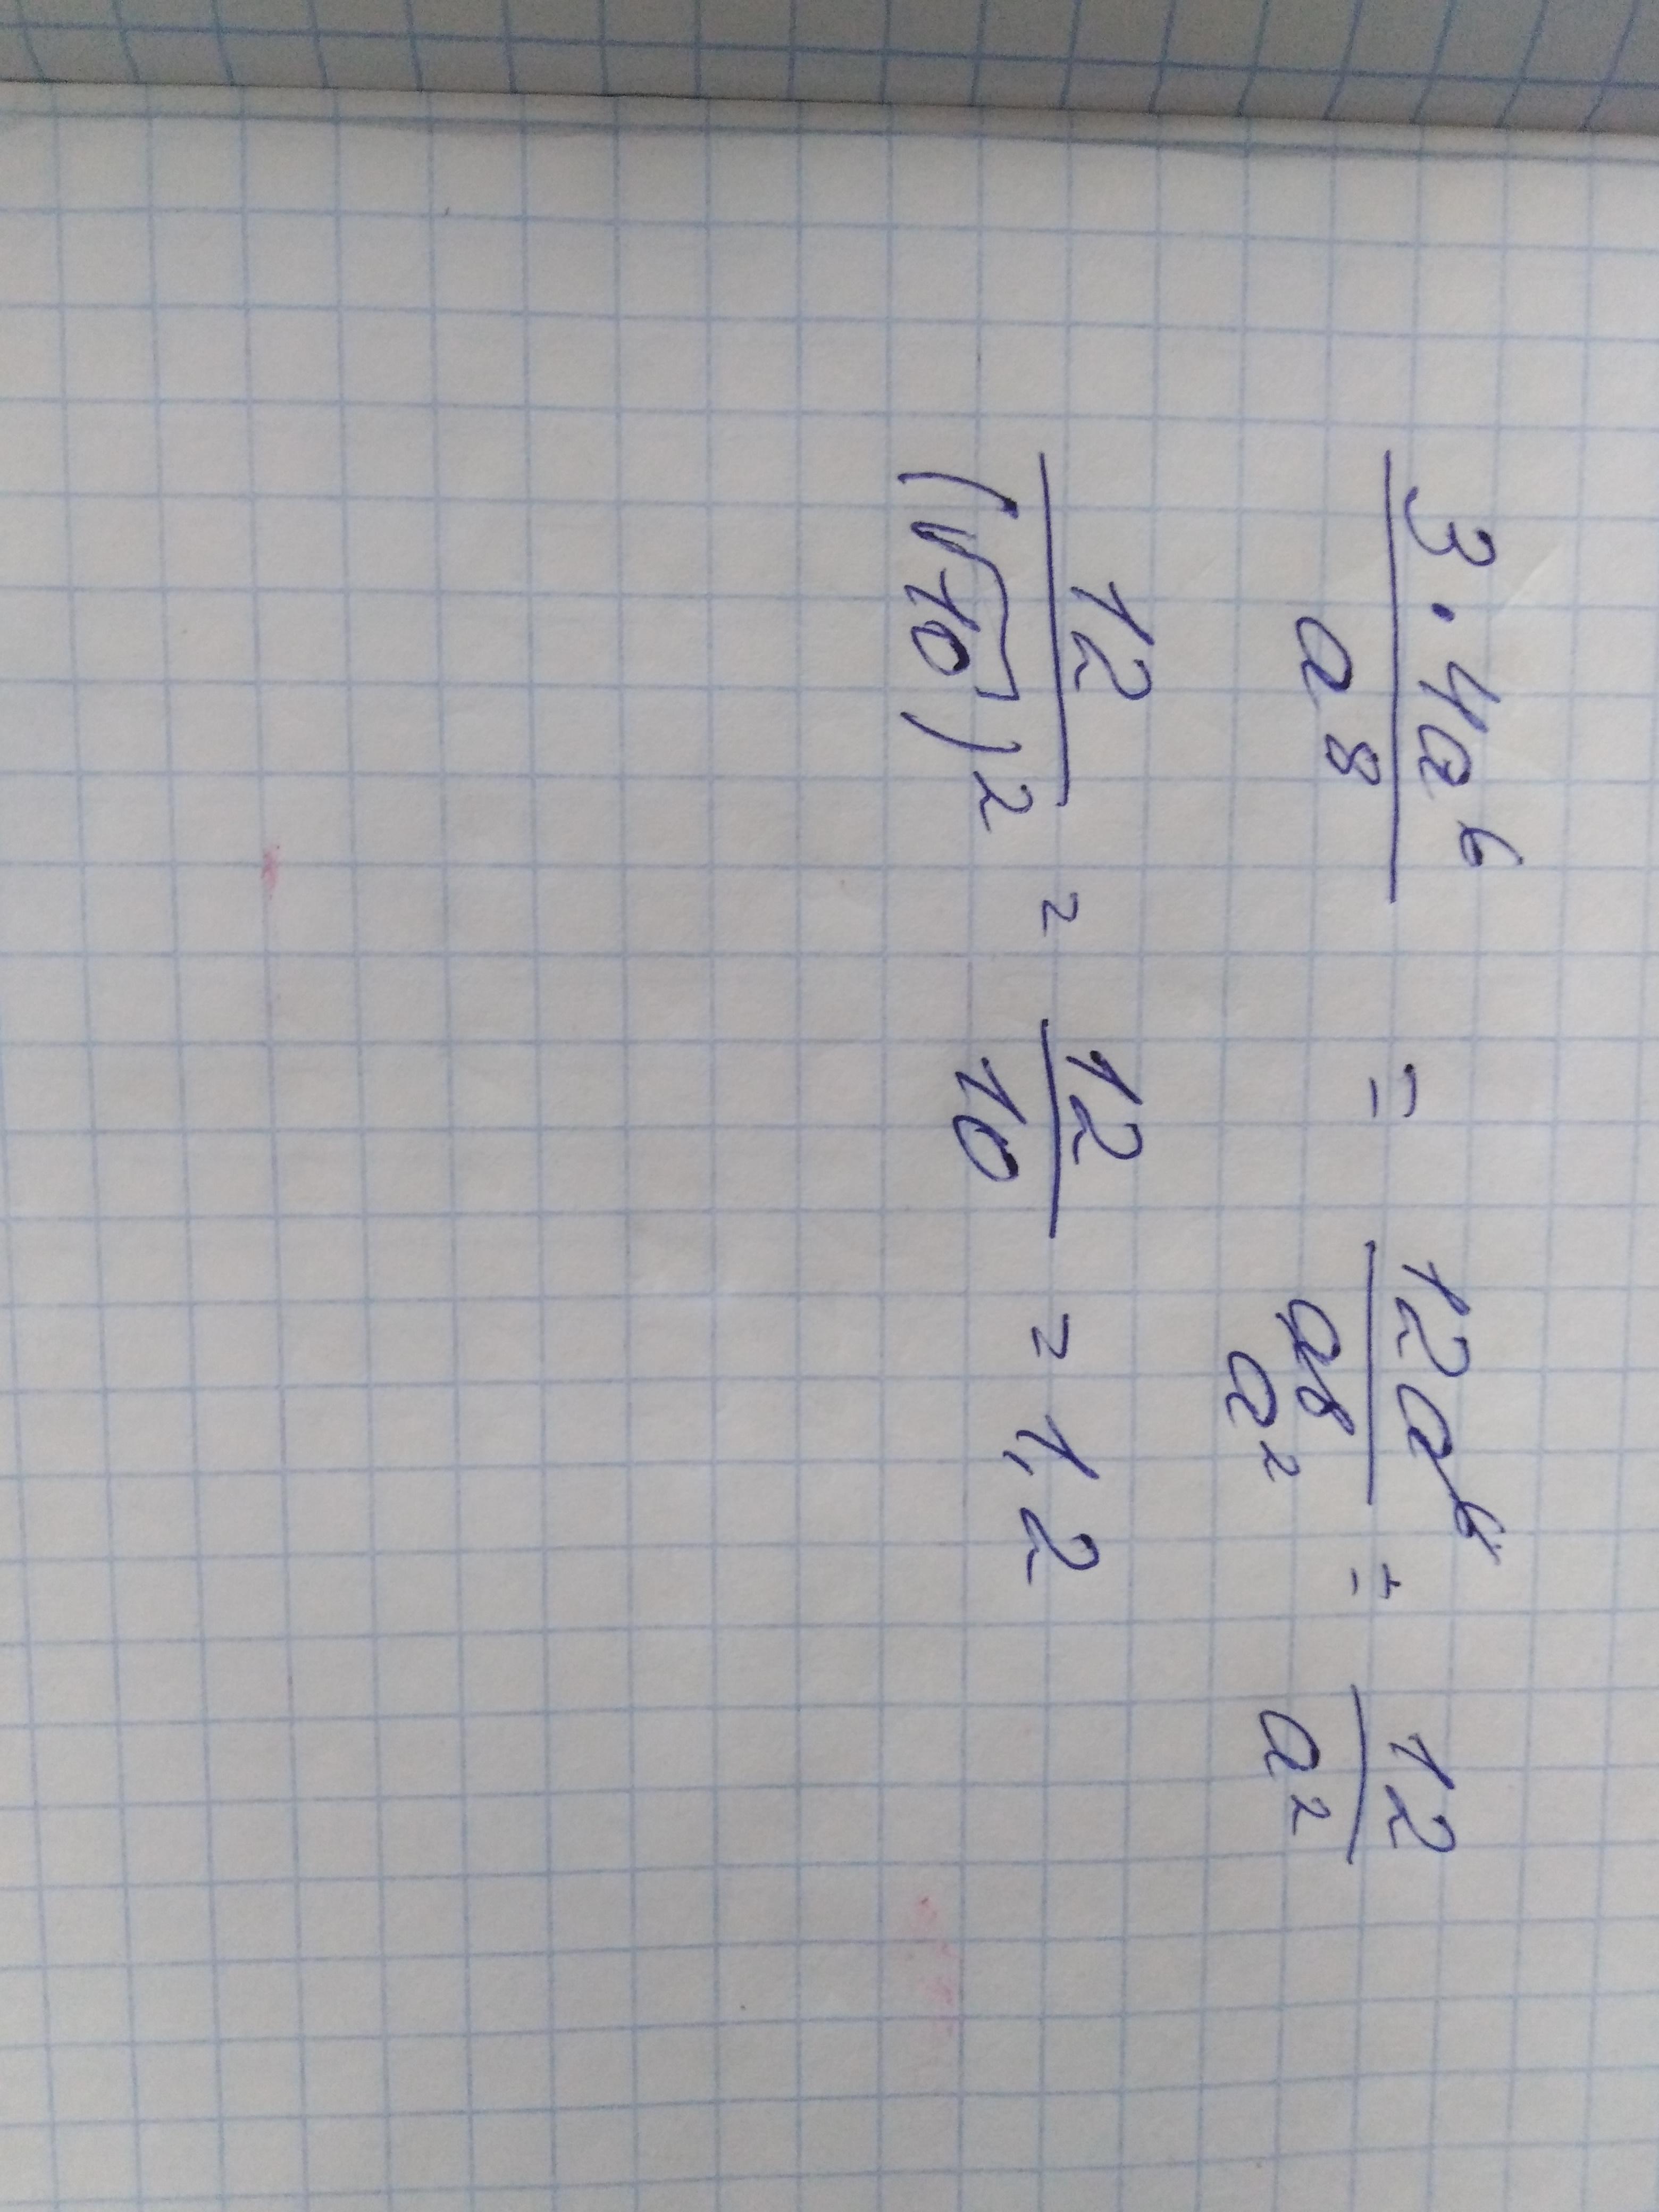 3 · 4a⁶ / a⁸ = 12a⁶ / a⁸ a² = 12 / a²
12 / (√10)² = 12 / 10 = 1,2